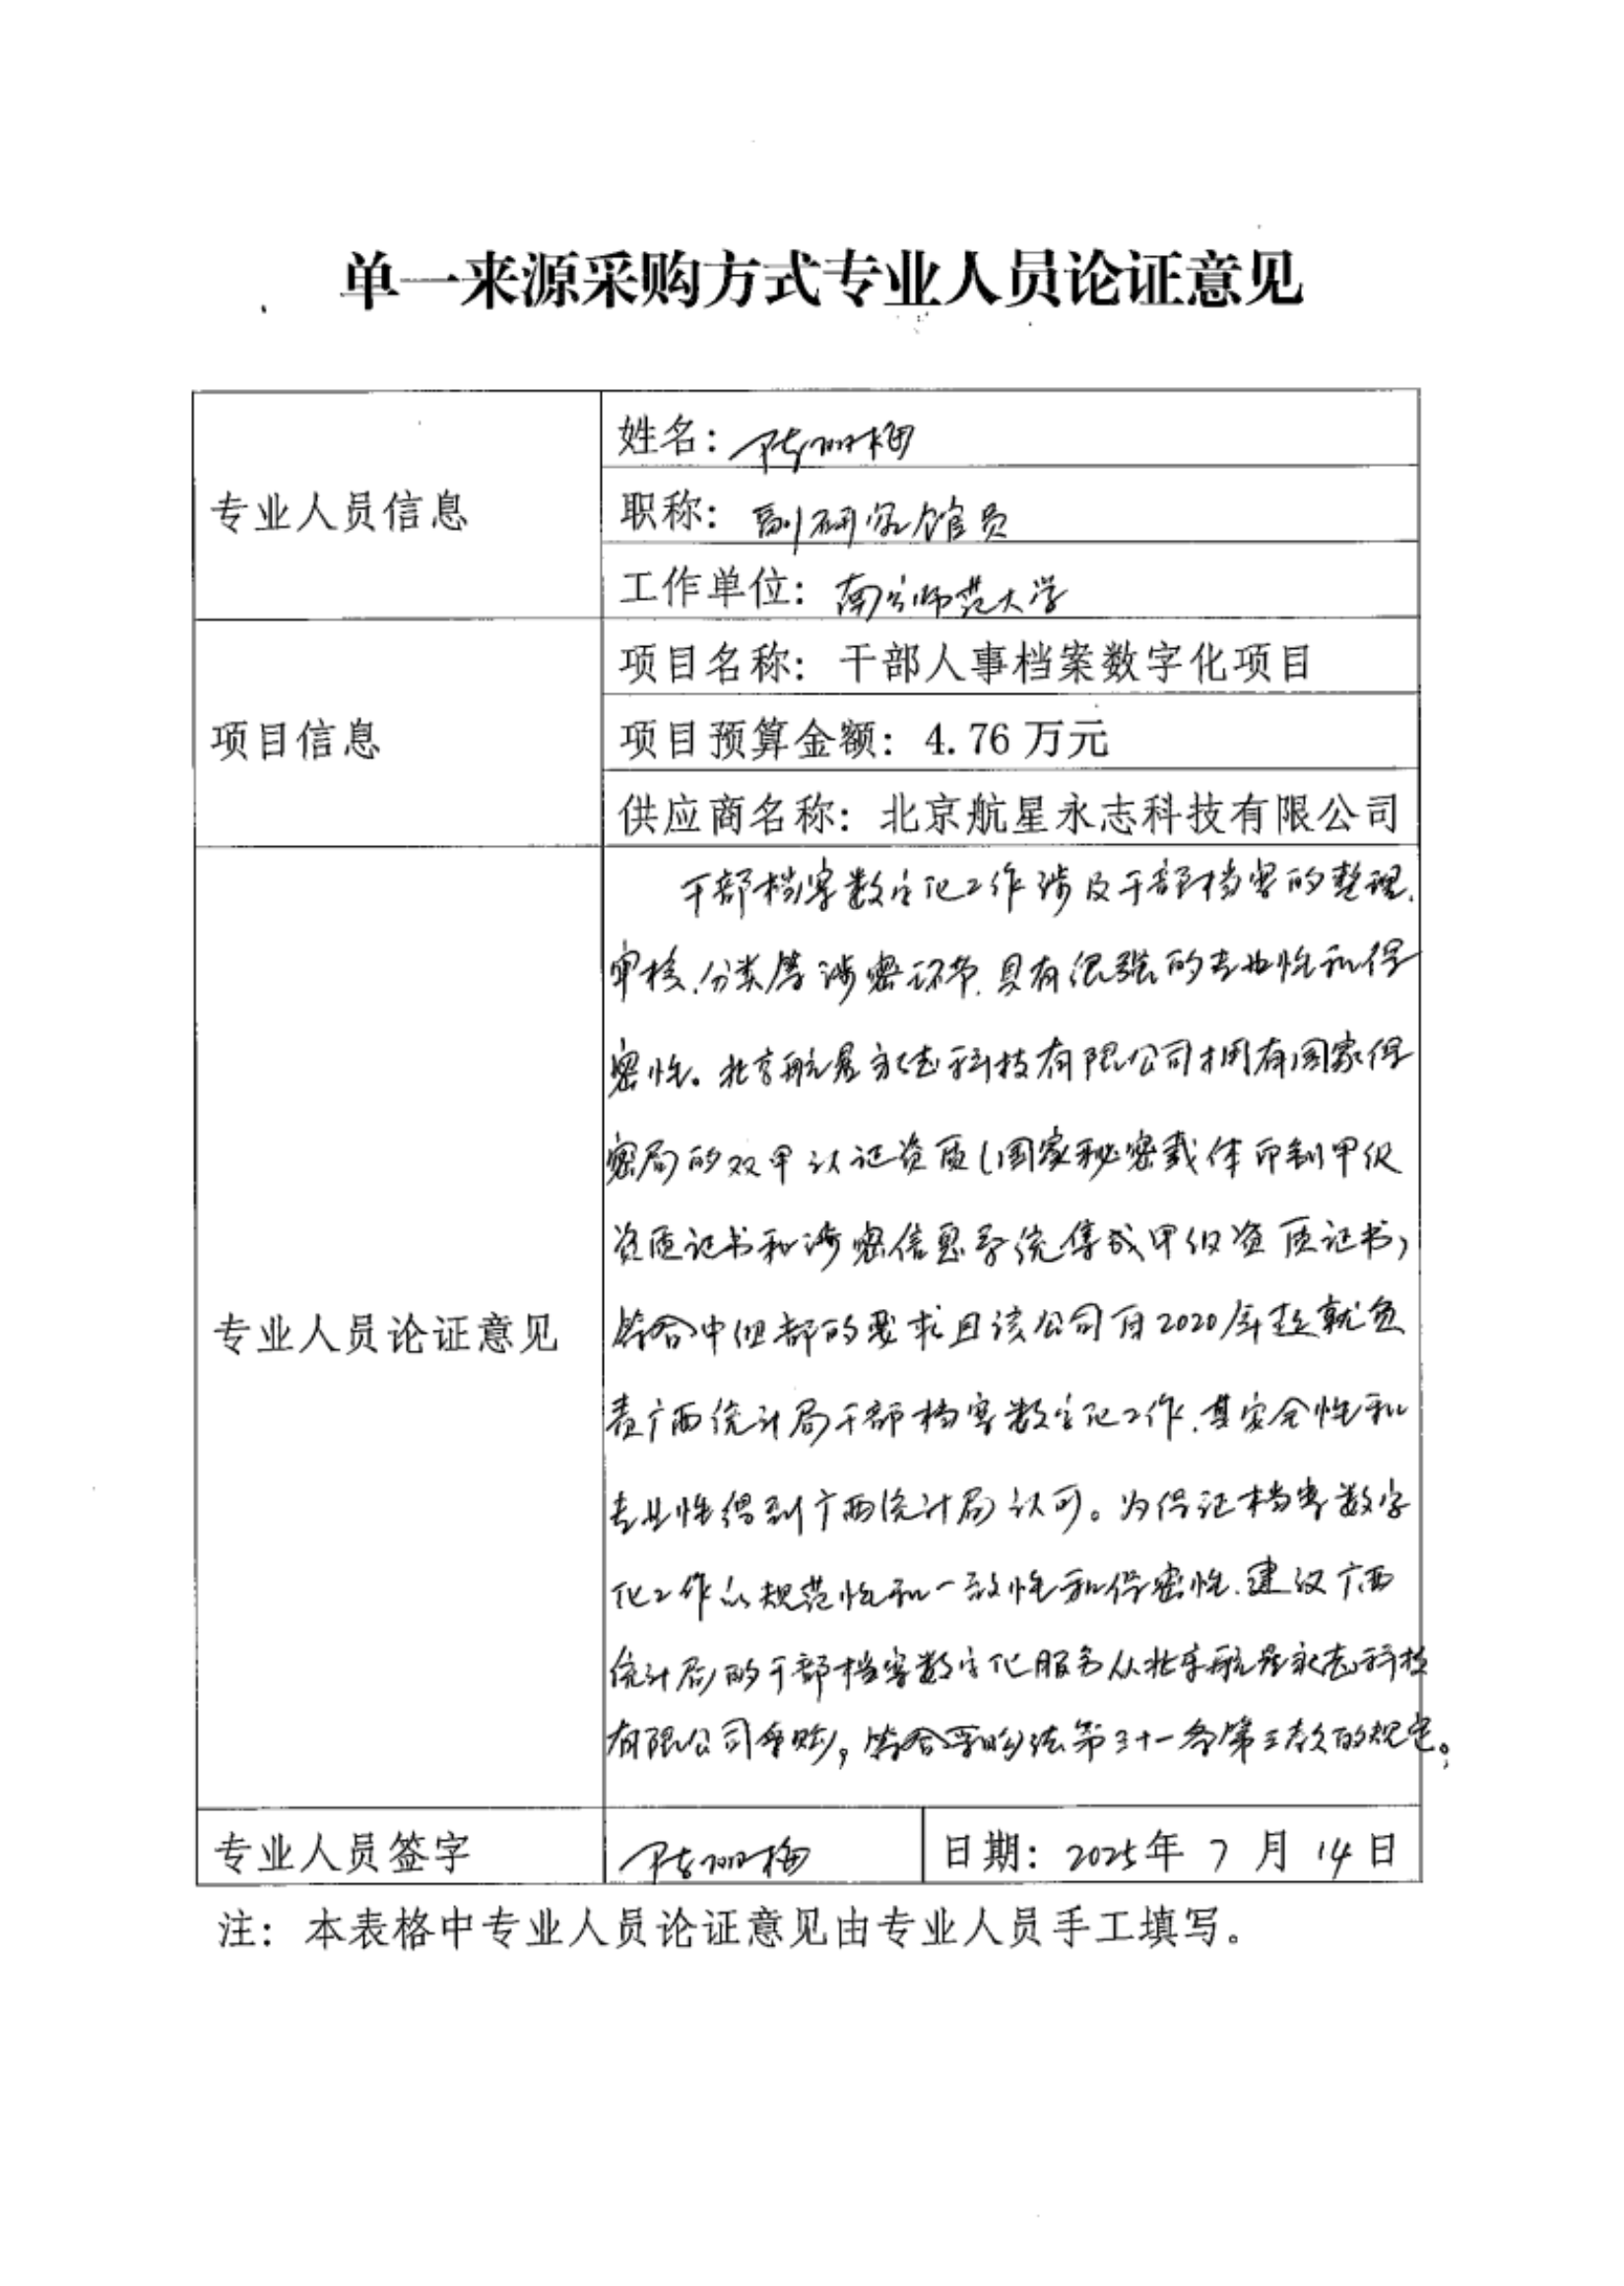 单一来源采购方式专业人员论证意见
专业人员信息
姓名：陆丽梅
职称：副研究馆员
工作单位：南宁师范大学
项目信息
项目名称：干部人事档案数字化项目
项目预算金额：4.76 万元
供应商名称：北京航星永志科技有限公司
专业人员论证意见
干部档案数字化工作涉及干部档案的整理、
审核、分类等涉密环节，具有很强的专业性和保
密性。北京航星永志科技有限公司拥有国家保
密局的双甲认证资质（国家秘密载体印制甲级
资质证书和涉密信息系统集成甲级资质证书）
符合中组部的要求且该公司自2020年起就负
责广西统计局干部档案数字化工作，其安全性和
专业性得到广西统计局认可。为保证档案数字
化工作的规范性和一致性和保密性，建议广西
统计局的干部档案数字化服务从北京航星永志科技
有限公司采购，符合采购法第三十一条第三款的规定。
专业人员签字
陆丽梅
日期：2025年 7 月 14 日
注：本表格中专业人员论证意见由专业人员手工填写。